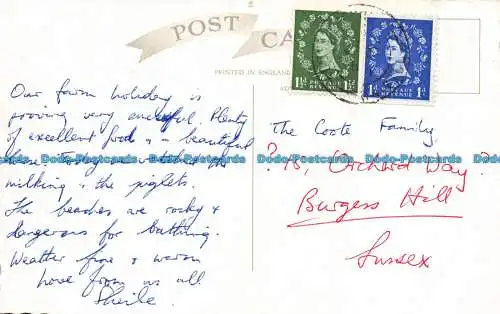 POST CA
PRINTED IN ENGLAND
1½d POSTAGE REVENUE 1½d
1d POSTAGE REVENUE 1d
Our farm holiday is
proving very successful. Plenty
of excellent food & a beautiful
milking & the piglets.
The beaches are rocky &
dangerous for bathing.
Weather fine & warm
Love from us all
Sheila.
The Coote Family,
? 75, Orchard Way ?
Burgess Hill
Sussex
Dodo-Postcards Dodo-Postcards Dodo-Postcards Dodo-Postcards Dodo-Postcards